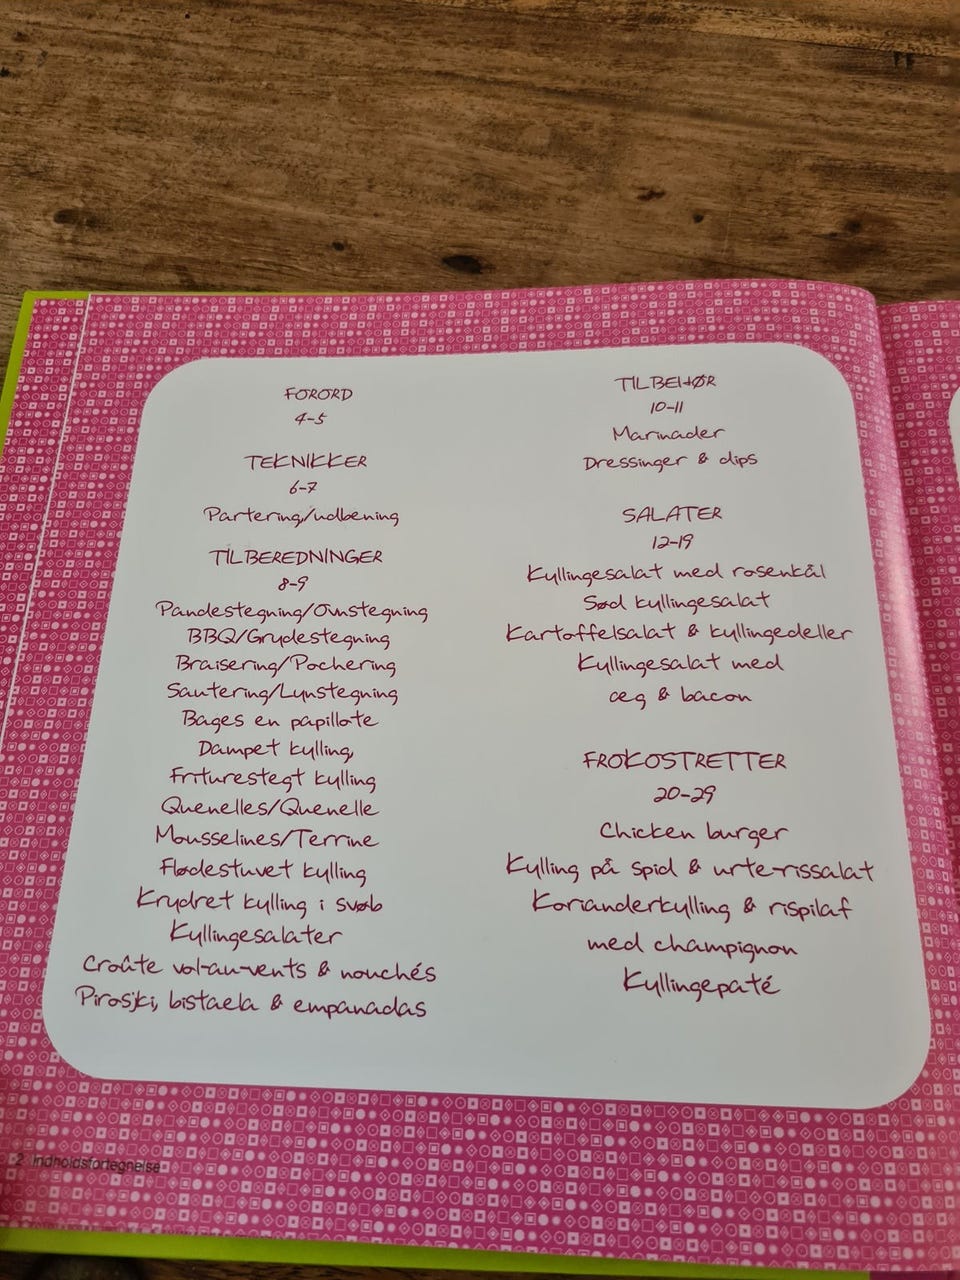 FORORD
4-5
TEKNIKKER
6-7
Partering/udbening
TILBEREDNINGER
8-9
Pandestegning/Ovnstegning
BBQ/Grydestegning
Braisering/Pochering
Sautering/Lynstegning
Bages en papillote
Dampet kylling,
Friturestegt kylling
Quenelles/Quenelle
Mousselines/Terrine
Flødestuvet kylling
Krydret kylling i svøb
Kyllingesalater
Croûte vol-au-vents & nouchés
Pirosjki, bistaela & empanadas
TILBEHØR
10-11
Marinader
Dressinger & dips
SALATER
12-19
Kyllingesalat med rosenkål
Sød kyllingesalat
Kartoffelsalat & kyllingedeller
Kyllingesalat med
æg & bacon
FROKOSTRETTER
20-29
Chicken burger
Kylling på spid & urte-rissalat
Korianderkylling & rispilaf
med champignon
Kyllingepaté
2 Indholdsfortegnelse